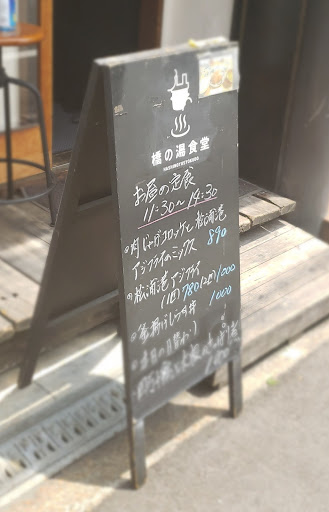 橋の湯食堂
HASHINOYUSYOKUDO
お昼の定食
11:30〜14:30
・肉じゃがコロッケと松浦港
アジフライのミックス 890
・松浦港アジフライ
(1枚)780(2枚)1000
・釜揚げしらす丼
1000
・本日の日替わり